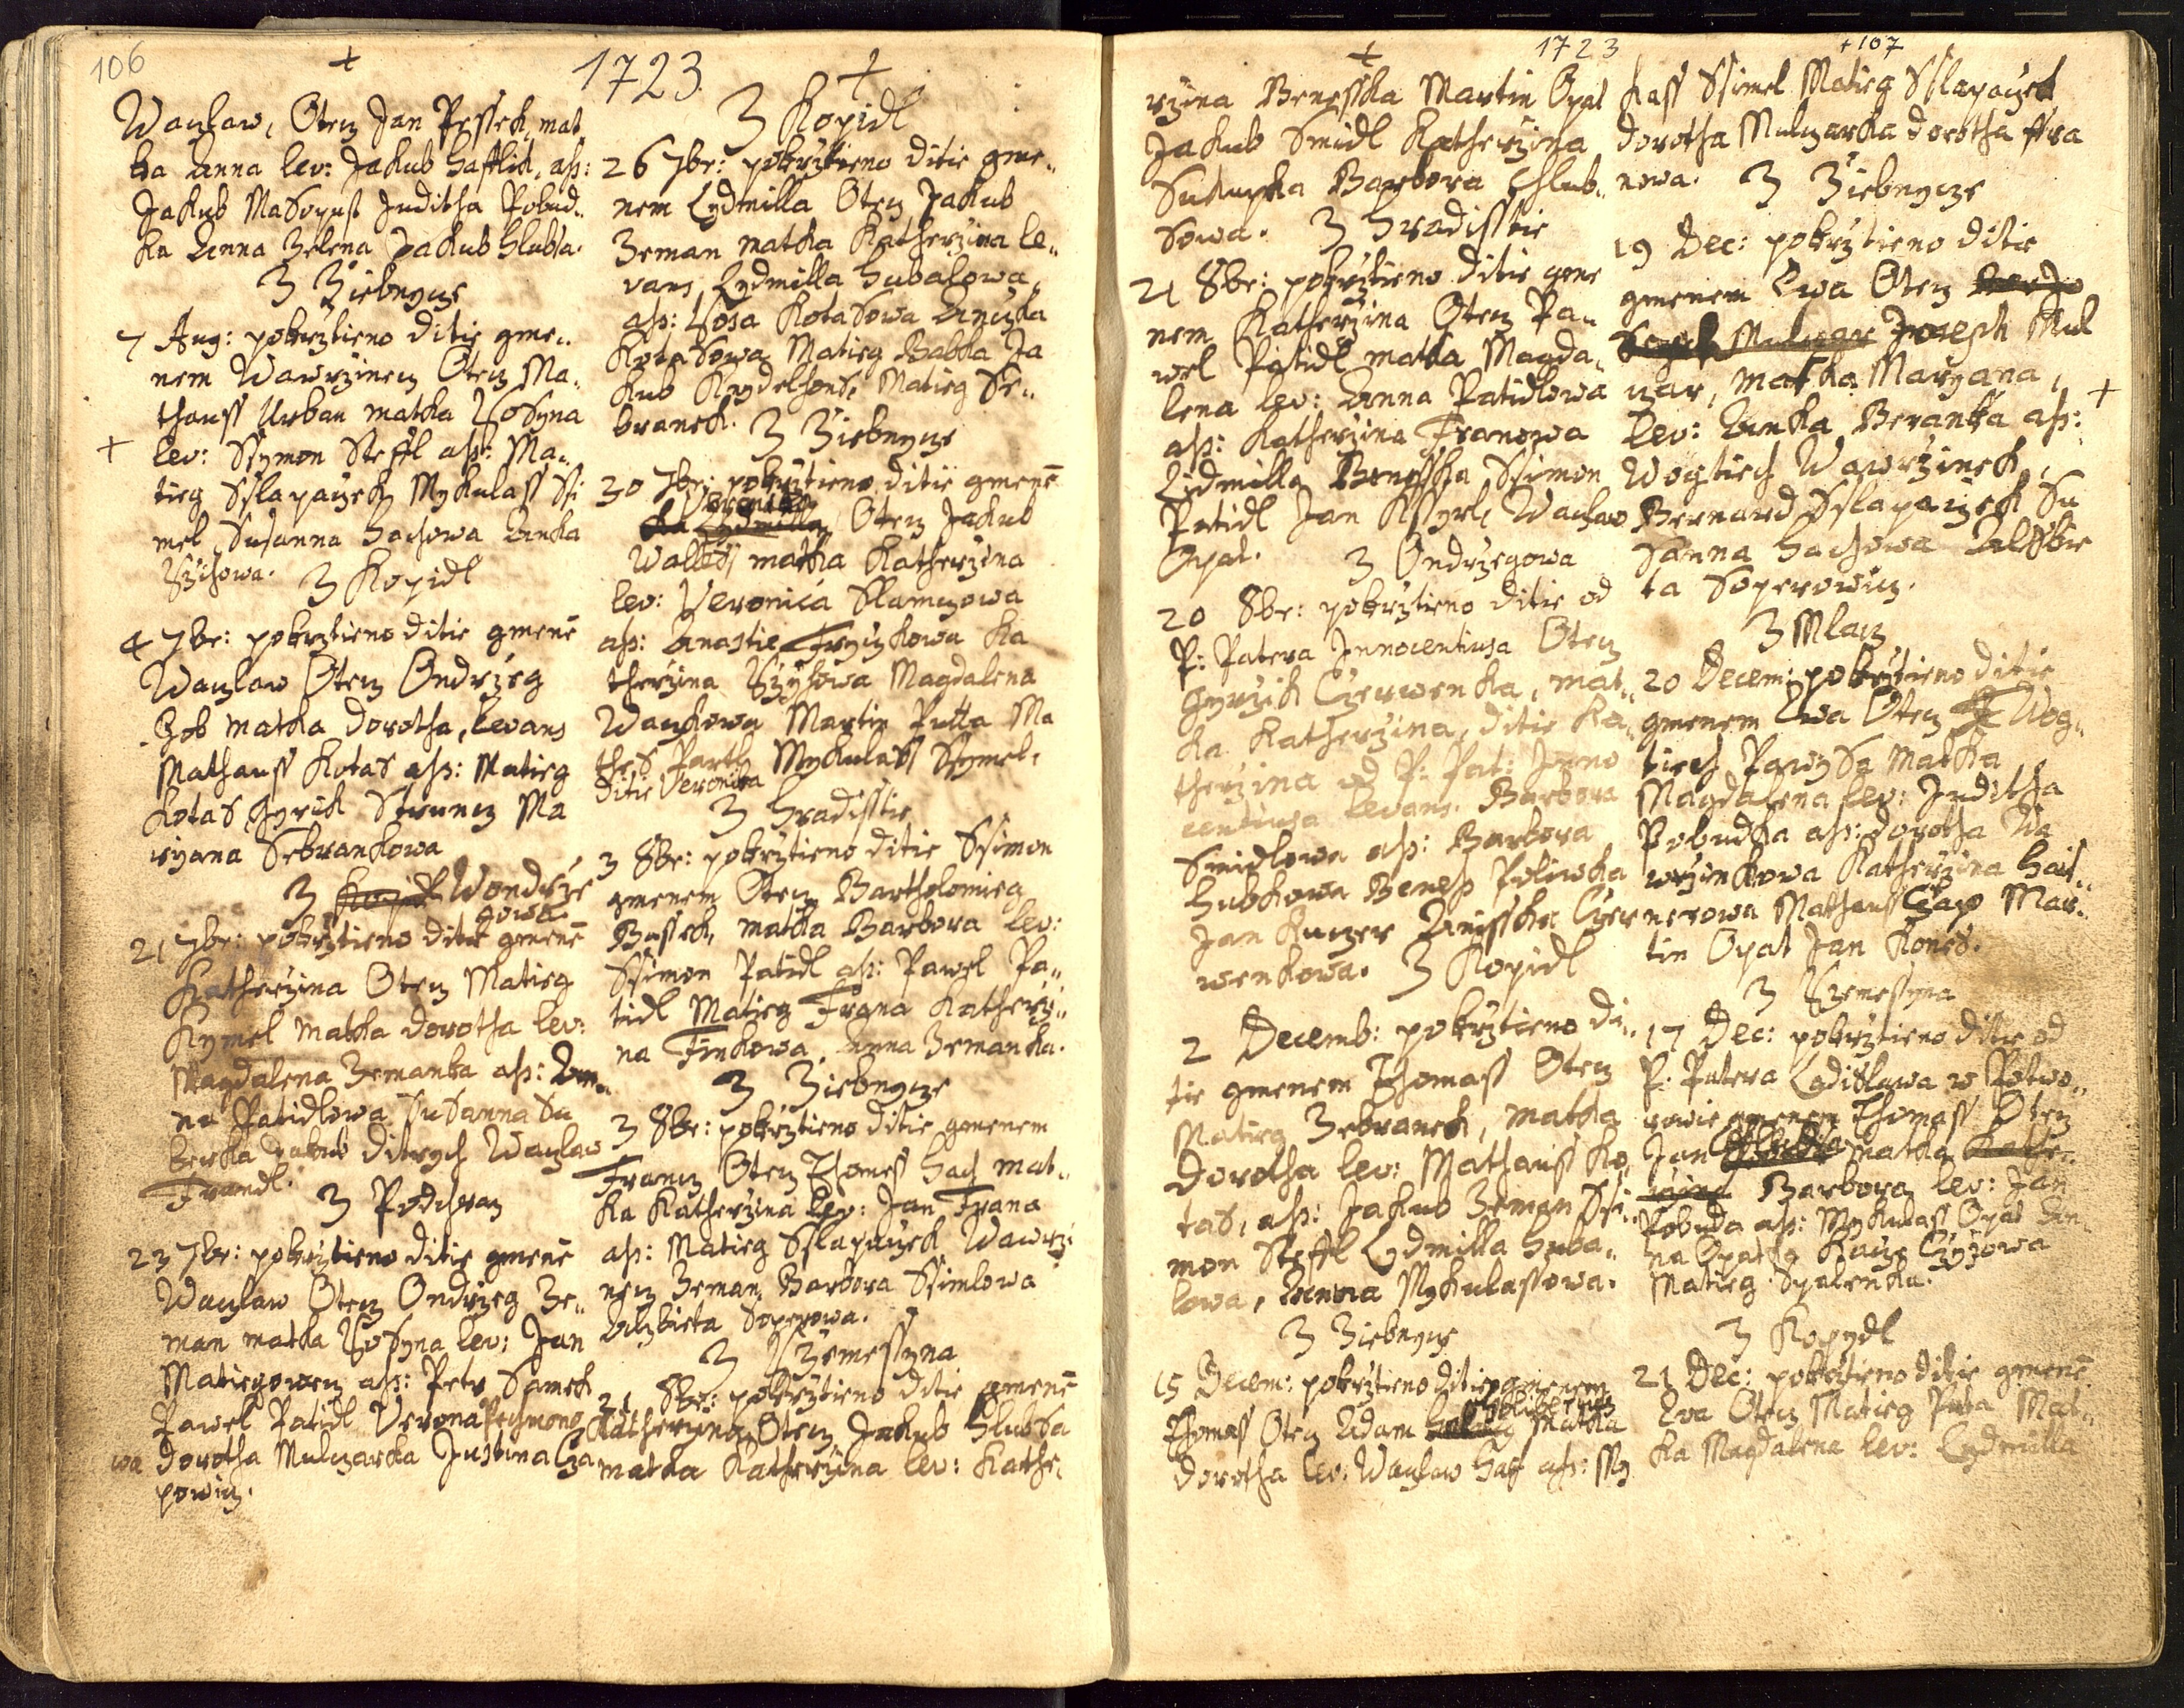 106
+
1723.
+
Waczlaw, Otecz Jan Pessek, mat„
ka Anna lev: Jakub Hafflik, ass:
Jakub Masopust Juditha Pobud„
ka Anna Zelena Jakub Hlubsa.
Z Ziebnycze
7 Aug: pokrztieno ditie gme„
nem Wawrzinecz Otecz Ma„
thauss Urban matka Rosyna
+ lev: Ssymon Steffl ass: Ma„
tieg Sslapaczek Mykulass Ssi
mel Susanna Hachowa Anka
Z Kopidl
4 7br: pokrztieno ditie gmenē
Waczlaw Otecz Ondrzeg
Bob matka dorotha, levans
Mathauss Kotas ass: Matieg
Kotas Gyrik Struncz Ma
ryana Sebrankowa
Z Wondrze
gowa
21 7br: pokrztieno ditie gmenē
Katherzina Otecz Matieg
Kymel matka dorotha lev:
Magdalena Zemanka ass: An„
na Patidlowa Susanna Su
Jakub ditrych Waczlaw
Frandl.
Z Podhraz
23 7br: pokrztieno ditie gmenē
Waczlaw Otecz Ondrzeg Ze„
man matka Rosyna lev: Jan
Matiegowecz ass: Petr Samek
Pawel Patidl Verona Pechmono
wa dorotha Mulczarka Justina Cza
powicz.
Z Kopidl
26 7br: pokrztieno ditie gme„
nem Lydmilla Otecz Jakub
Zeman matka Katherzina le„
vans Lydmilla Hubalowa„
ass: Rosa Kotasowa Anczka
Kotasowa Matieg Babka Ja
kub Matieg Se„
branek. Z Ziebnycze
30 7br: pokrztieno ditie gmenē
Veronika
ka Lydmilla Otecz Jakub
Walles matka Katherzina
lev: Veronica Slamczowa
ass: Anastie Fryczkowa Ka
therzina Magdalena
Wankowa Martin Putta Ma
thes Parth Mykulass Ssymel.
ditie Veronika
Z Hradisstie
3 8br: pokrztieno ditie Ssimon
gmenem Otecz Bartholomieg
Bussek, matka Barbora lev:
Ssimon Patidl ass: Pawel Pa„
tidl Matieg Frana Katherzi„
na Finkowa. Anna Zemanka.
Z Ziebnycze
3 8br: pokrztieno ditie gmenem
Francz Otecz Thomess Hach mat„
ka Katherzina lev: Jan Frana
ass: Matieg Sslapaczek Wawrzi
necz Zeman, Barbora Ssimlowa
Alzbieta Soperowa.
Z Krzemessyna
21 8br: pokrztieno ditie gmenē
Katheryna Otecz Jakub Hlubsa
matka Katherzina lev: Kathe„
+
1723
+107
rzina Benesska Martin Opat
Jakub Smidl Katherzina
Sudupka Barbora Hlub„
sowa. Z Hradisstie
21 8br: pokrztieno ditie gme
nem Katherzina Otecz Pa„
wel Patidl matka Magda„
lena lev: Anna Patidlowa
ass: Katherzina Franowa
Lidmilla Benesska Ssimon
Patidl Jan Waczlaw
Opat. Z Ondrzegowa
20 8br: pokrztieno ditie od
P: Patera Innocentiusa Otecz
Gyrzik Czerwenka, mat„
ka Katherzina, ditie Ka„
therzina od P: Pat: Inno
centiusa levans. Barbora
Smidlowa ass: Barbora
Hubkowa Beness Poliwka
Jan Kuczer Anisska Czer
wenkowa. Z Kopidl
2 Decemb: pokrztieno di„
tie gmenem Thomass Otecz
Matieg Zebranek, matka
Dorotha lev: Mathauss Ko„
tas, ass: Jakub Zeman Ssi„
mon Steffl Lydmilla Huba„
lowa, Anna Mykulassowa.
Z Ziebnycze
15 Decem: pokrztieno ditie gmenem
Thomass Otecz Adam matka
dorotha lev: Waczlaw Hach ass: My
kass Ssimel Matieg Sslapaczek
dorotha Mulczarka dorotha ffra
nowa. Z Ziebnycze
19 Dec: pokrztieno ditie
gmenem Ewa Otecz
Mulczar Joseph Mul
czar, matka Maryana, +
lev: Anka Beranka ass:
Wogtiech Wawrzinek,
Bernard Sslapaczek Su
sanna Hachowa Alssbie
ta Soperowicz.
Z Mlacz
20 Decem: pokrztieno ditie
gmenem Ewa Otecz Wog„
tiech Pawzsa matka
Magdalena lev: Juditha
Pobudka ass: dorotha Wa
wrzinkowa Katherzina Hait„
nerowa Mathauss Czap Mar„
tin Opat Jan Kones.
Z Krzemessyna
17 Dec: pokrztieno ditie od
P: Patera Ladislawa w Potwo„
rowie gmenem Thomass Otecz
Jan Hlubsa matka Kathe„
rzina Barbora lev: Jan
Pobuda ass: Mykulass Opat An
na Opatka Kacze Czyzowa
Matieg Spalenka.
Z Kopydl
21 Dec: pokrztieno ditie gmenē
Eva Otecz Matieg Puta Mat„
ka Magdalena lev: Lydmilla